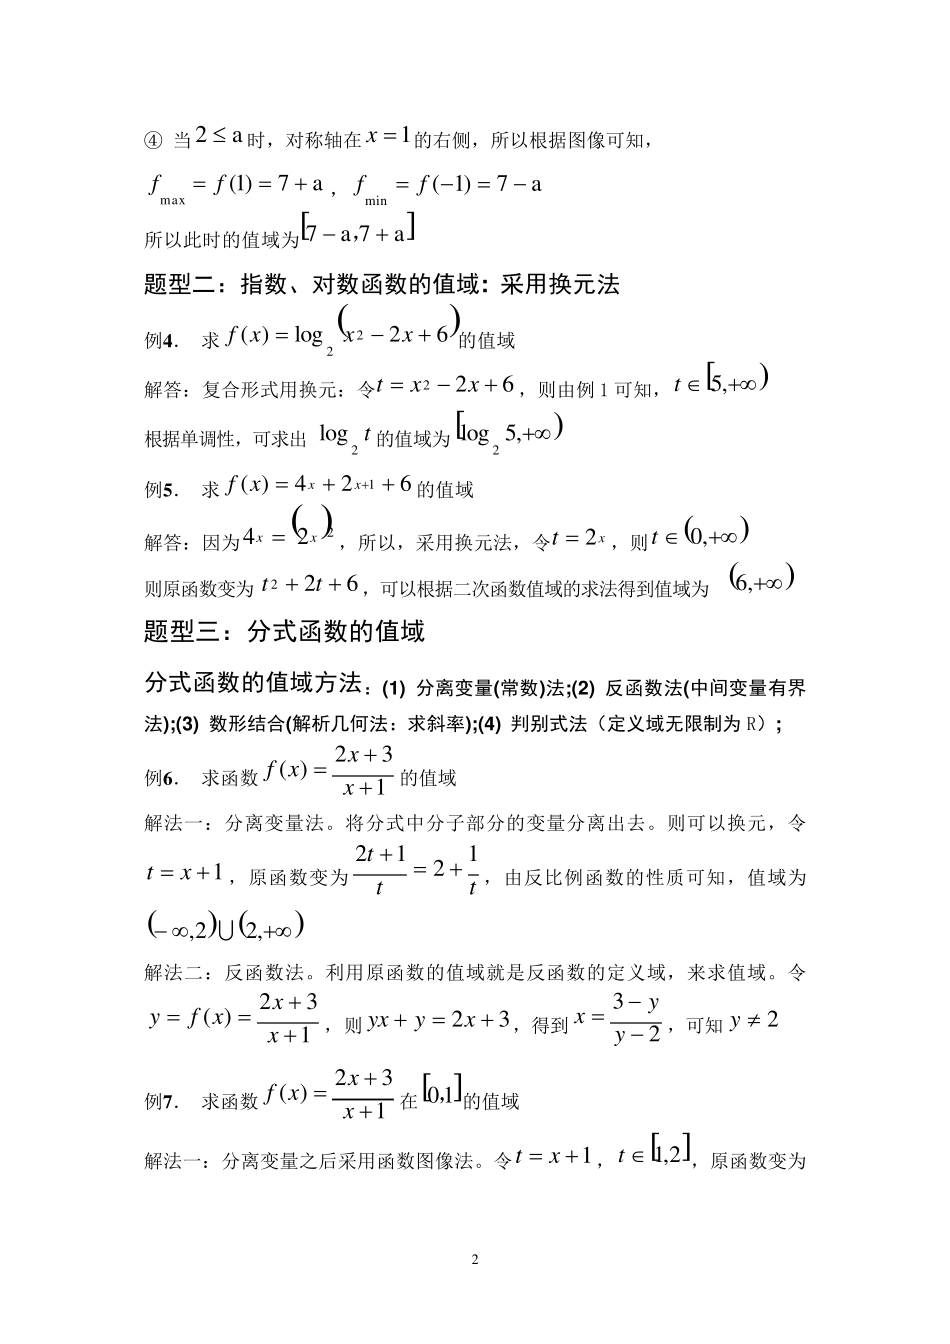 ④ 当 2 ≤ a 时，对称轴在 x = 1 的右侧，所以根据图像可知，
f_max = f(1) = 7 + a ，f_min = f(−1) = 7 − a
所以此时的值域为[7 − a，7 + a]
题型二：指数、对数函数的值域：采用换元法
例4． 求 f(x) = log_2(x^2 − 2x + 6)的值域
解答：复合形式用换元：令 t = x^2 − 2x + 6 ，则由例 1 可知， t ∈ [5,+∞)
根据单调性，可求出 log_2 t 的值域为 [log_2 5,+∞)
例5． 求 f(x) = 4^x + 2^{x+1} + 6 的值域
解答：因为 4^x = (2^x)^2 ，所以，采用换元法，令 t = 2^x ，则 t ∈ (0,+∞)
则原函数变为 t^2 + 2t + 6 ，可以根据二次函数值域的求法得到值域为 (6,+∞)
题型三：分式函数的值域
分式函数的值域方法：(1) 分离变量(常数)法;(2) 反函数法(中间变量有界
法);(3) 数形结合(解析几何法：求斜率);(4) 判别式法（定义域无限制为 R）;
例6． 求函数 f(x) = (2x + 3)/(x + 1) 的值域
解法一：分离变量法。将分式中分子部分的变量分离出去。则可以换元，令
t = x + 1 ，原函数变为 (2t + 1)/t = 2 + 1/t ，由反比例函数的性质可知，值域为
(− ∞,2)∪(2,+∞)
解法二：反函数法。利用原函数的值域就是反函数的定义域，来求值域。令
y = f(x) = (2x + 3)/(x + 1) ，则 yx + y = 2x + 3，得到 x = (3 − y)/(y − 2) ，可知 y ≠ 2
例7． 求函数 f(x) = (2x + 3)/(x + 1) 在 [0，1]的值域
解法一：分离变量之后采用函数图像法。令 t = x + 1 ， t ∈ [1,2]，原函数变为
2